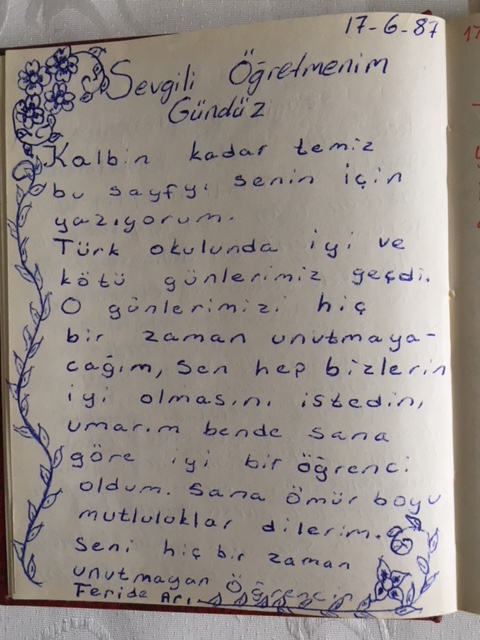 17-6-87
Sevgili Öğretmenim
Gündüz
Kalbin kadar temiz
bu sayfyı senin için
yazıyorum.
Türk okulunda iyi ve
kötü günlerimiz geçdi.
O günlerimizi hiç
bir zaman unutmaya-
cağım, sen hep bizlerin
iyi olmasını istedin,
umarım bende sana
göre iyi bir öğrenci
oldum. Sana ömür boyu
mutluluklar dilerim.
Seni hiç bir zaman
unutmayan Öğrencin
Feride Arı
17